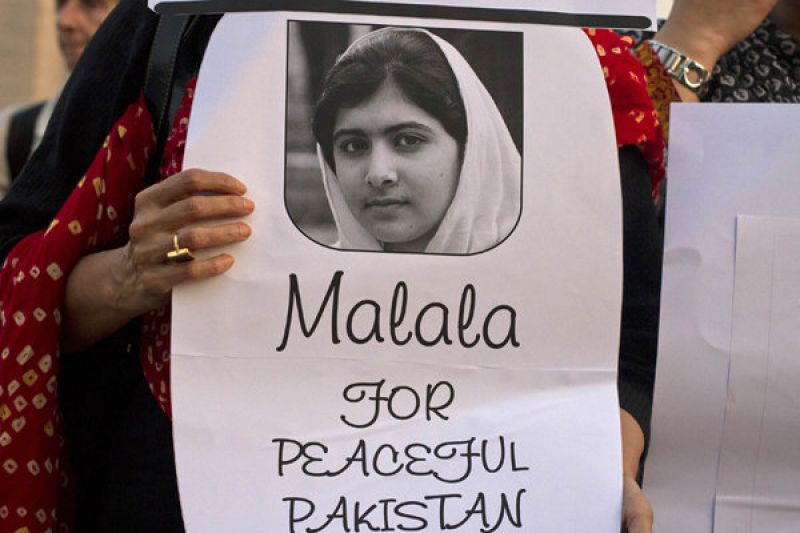 Malala
FOR
PEACEFUL
PAKISTAN